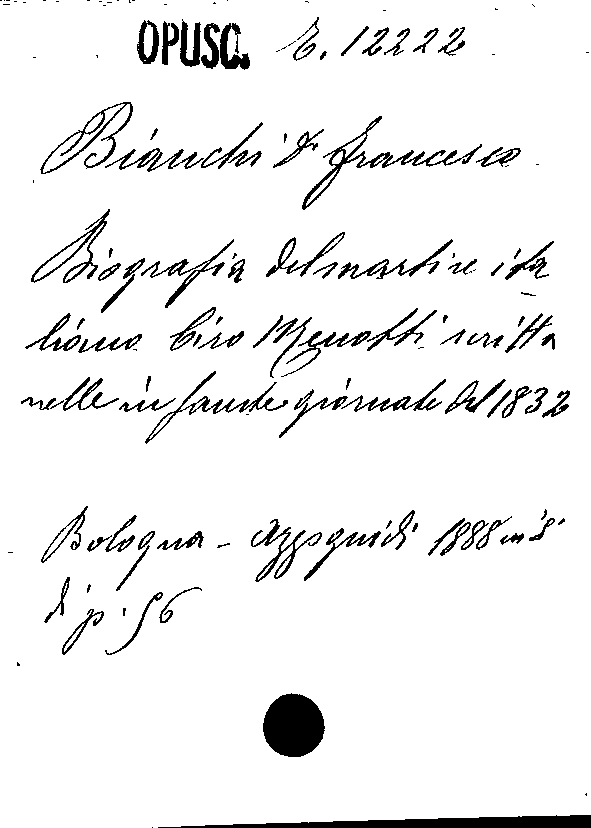 OPUSC. E. 12222
Bianchi Dr Francesco
Biografia del martire ita
liano Ciro Menotti scritta
nelle infauste giornate del 1832
Bologna - Azzoguidi 1888 in 8°
di p. 56